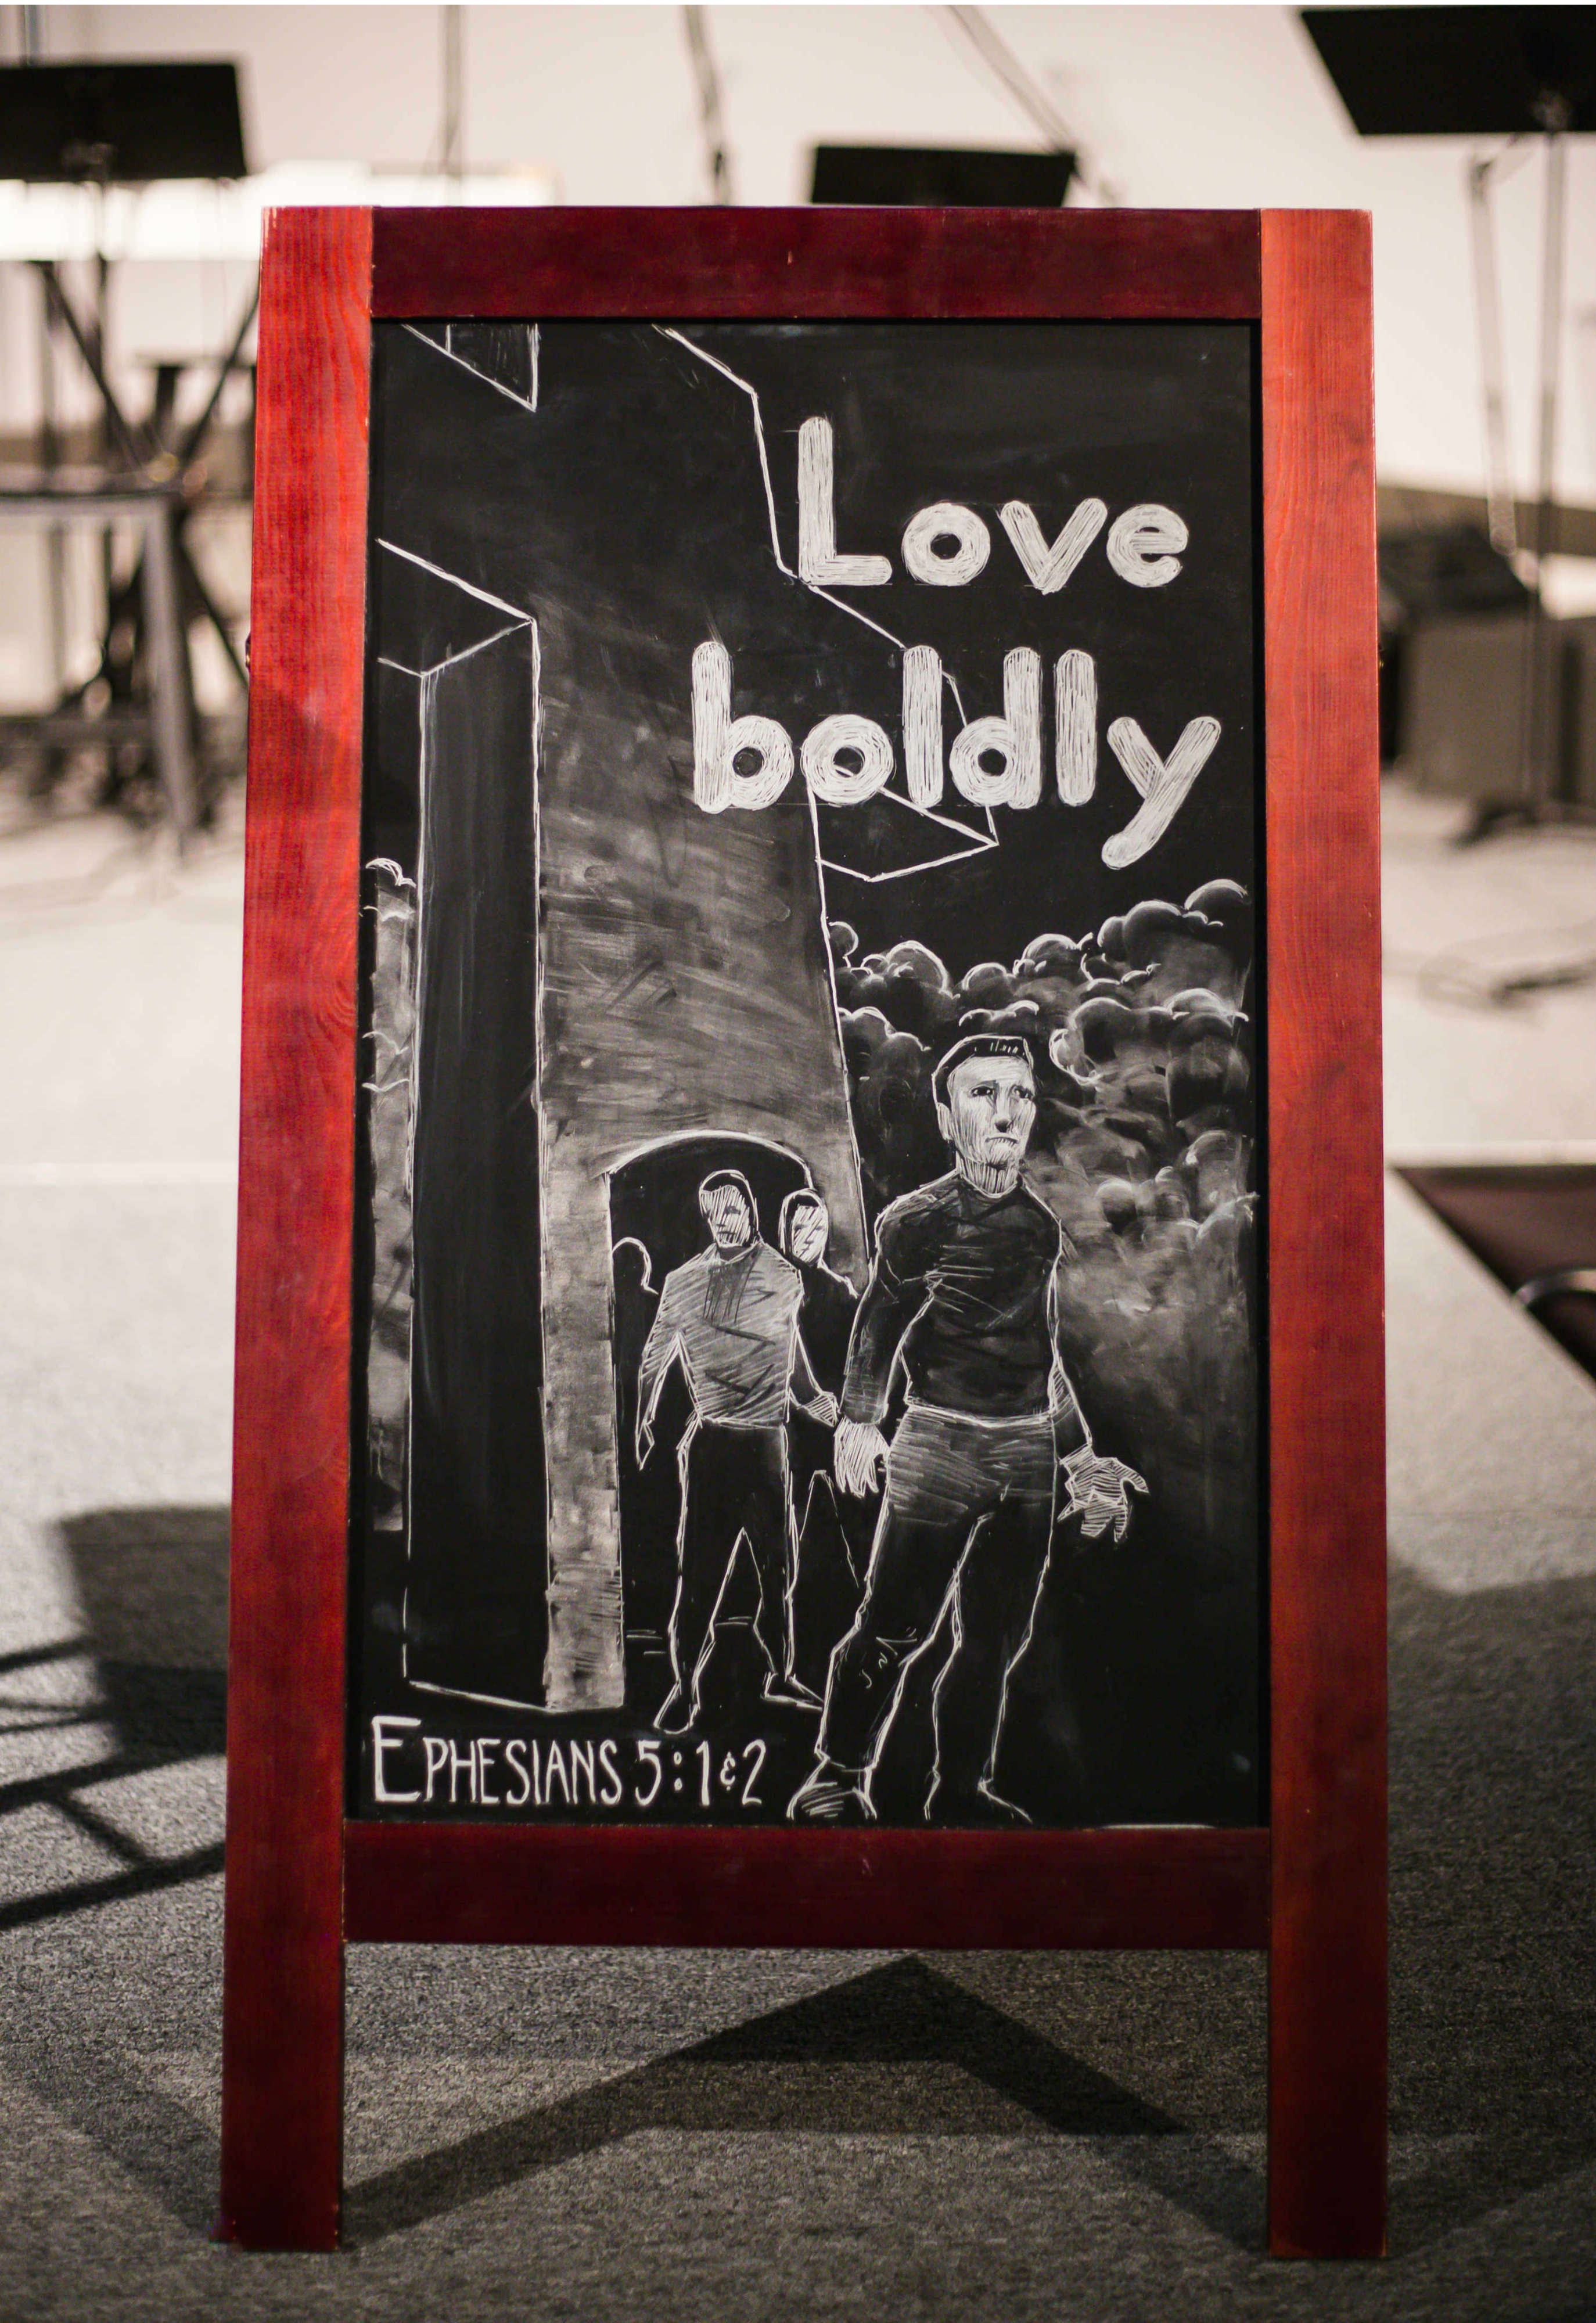 Love
boldly
EPHESIANS 5:1&2